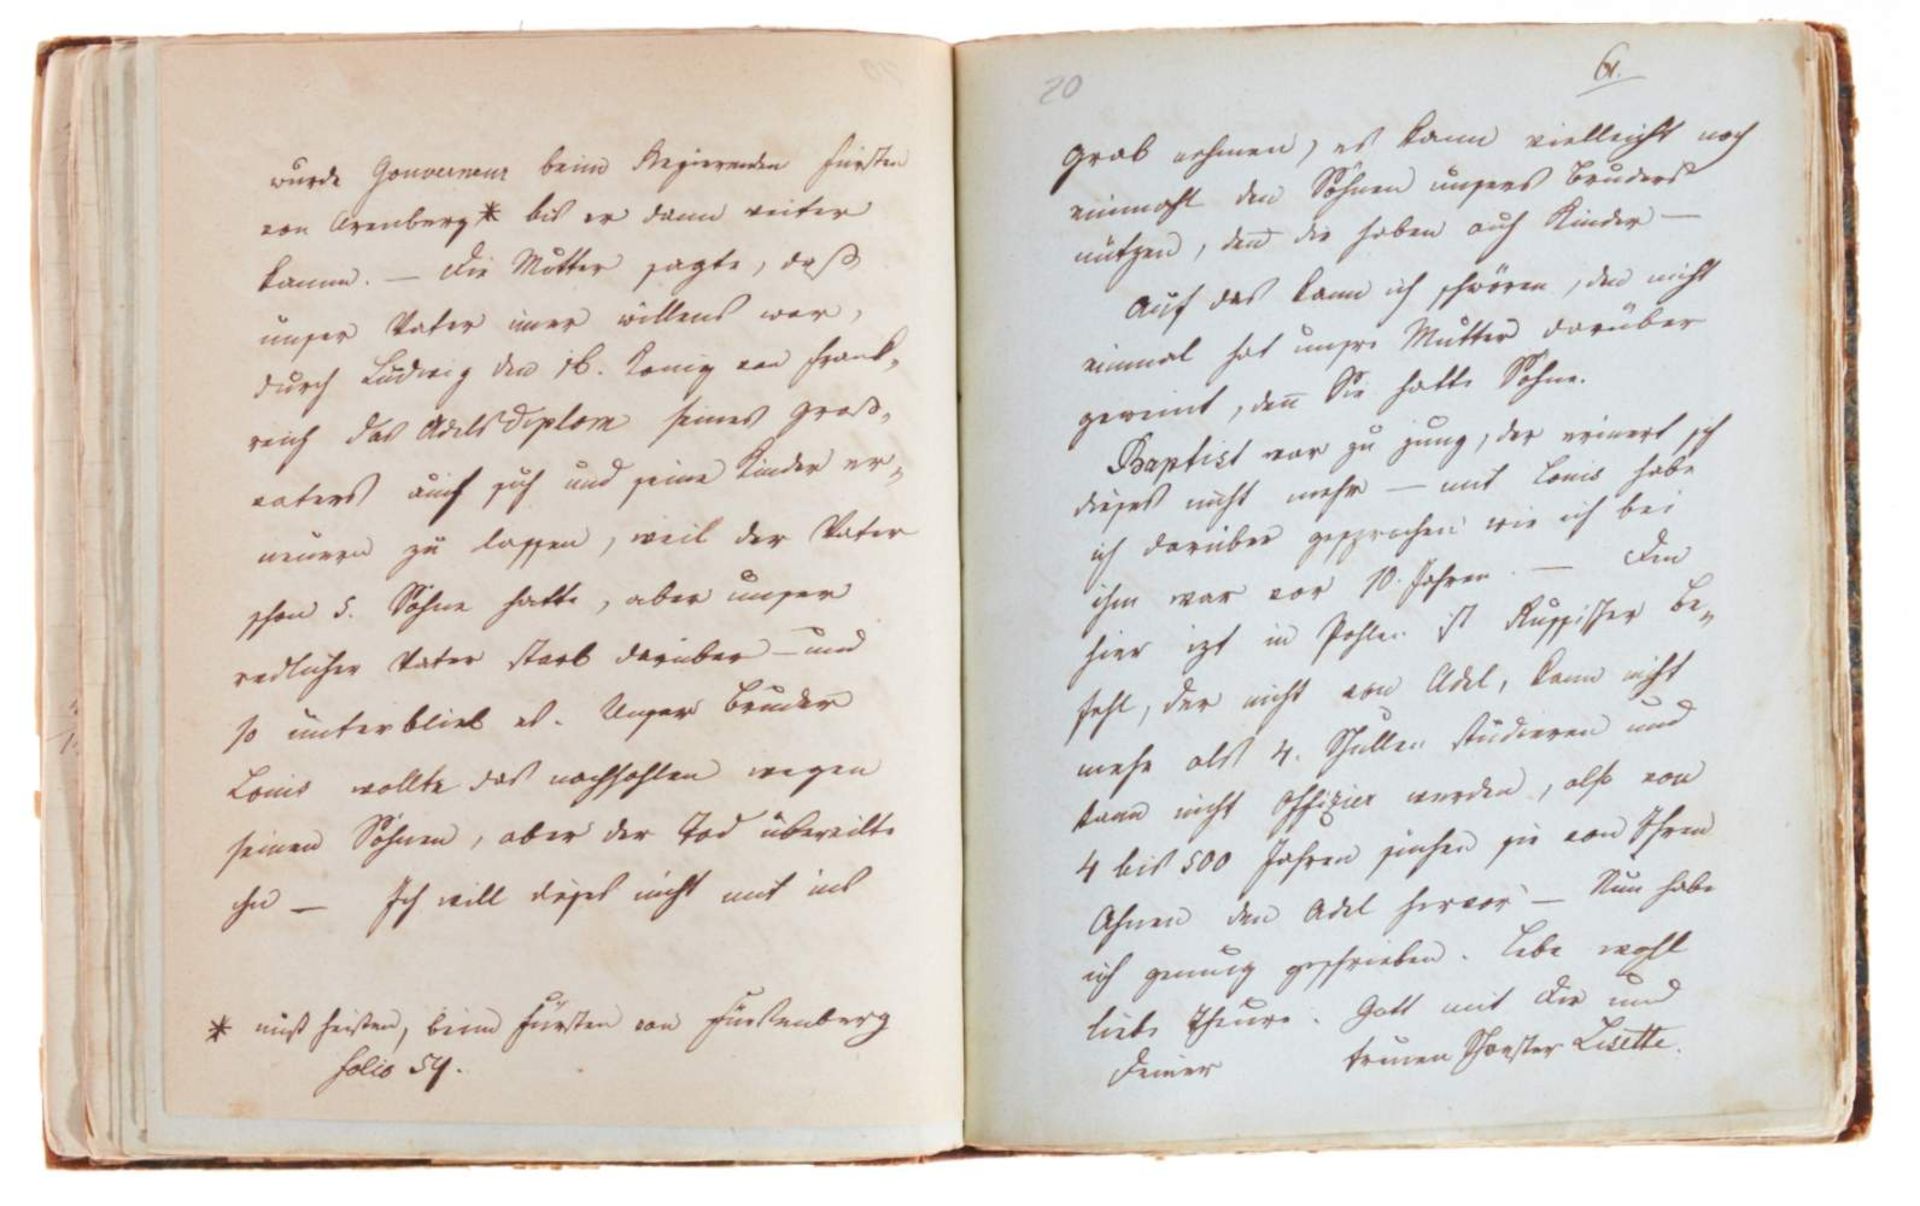 wurde Gouverneur beim Regierenden Fürsten
von Arenberg* bis er dann weiter
kamm. — Die Mutter sagte, daß
unser Vater imer willens war,
durch Ludwig den 16. König von Frank-
reich das Adels Diplom seines Groß-
vaters auch sich und seine Kinder er-
neuern zu lassen, weil der Vater
schon 5. Söhne hatte, aber unser
redlicher Vater starb darüber — und
so unterblieb es. Unser Bruder
Louis wollte das nachhohlen wegen
seinen Söhnen, aber der Tod übereilte
ihn — Ich will dises nicht mit ins
* muß heisten, beim Fürsten von Fürstenberg
folio 54.
20
61.
Grab nehmen, es kann vielleicht noch
einmahl den Söhnen unsers Bruders
nützen, den die haben auch Kinder —
Auf das kann ich schwören, den nicht
einmal hat unsre Mutter darüber
geweint, den Sie hatte Söhne.
Baptist war zu jung, der erinert sich
dieses nicht mehr — mit Louis habe
ich darüber gesprochen wie ich bei
ihm war vor 10. Jahren. — Den
hier izt in Pohlen ist Russischer Be-
fehl, der nicht von Adel, kann nicht
mehr als 4. Schullen studieren und
kann nicht Offizier werden, also von
4 bis 500 Jahren suchen sie von Ihren
Ahnen den Adel hervor — Nun habe
ich genug geschrieben. Lebe wohl
liebe Theure. Gott mit Dir und
Deiner treuen Schwester Lisette.